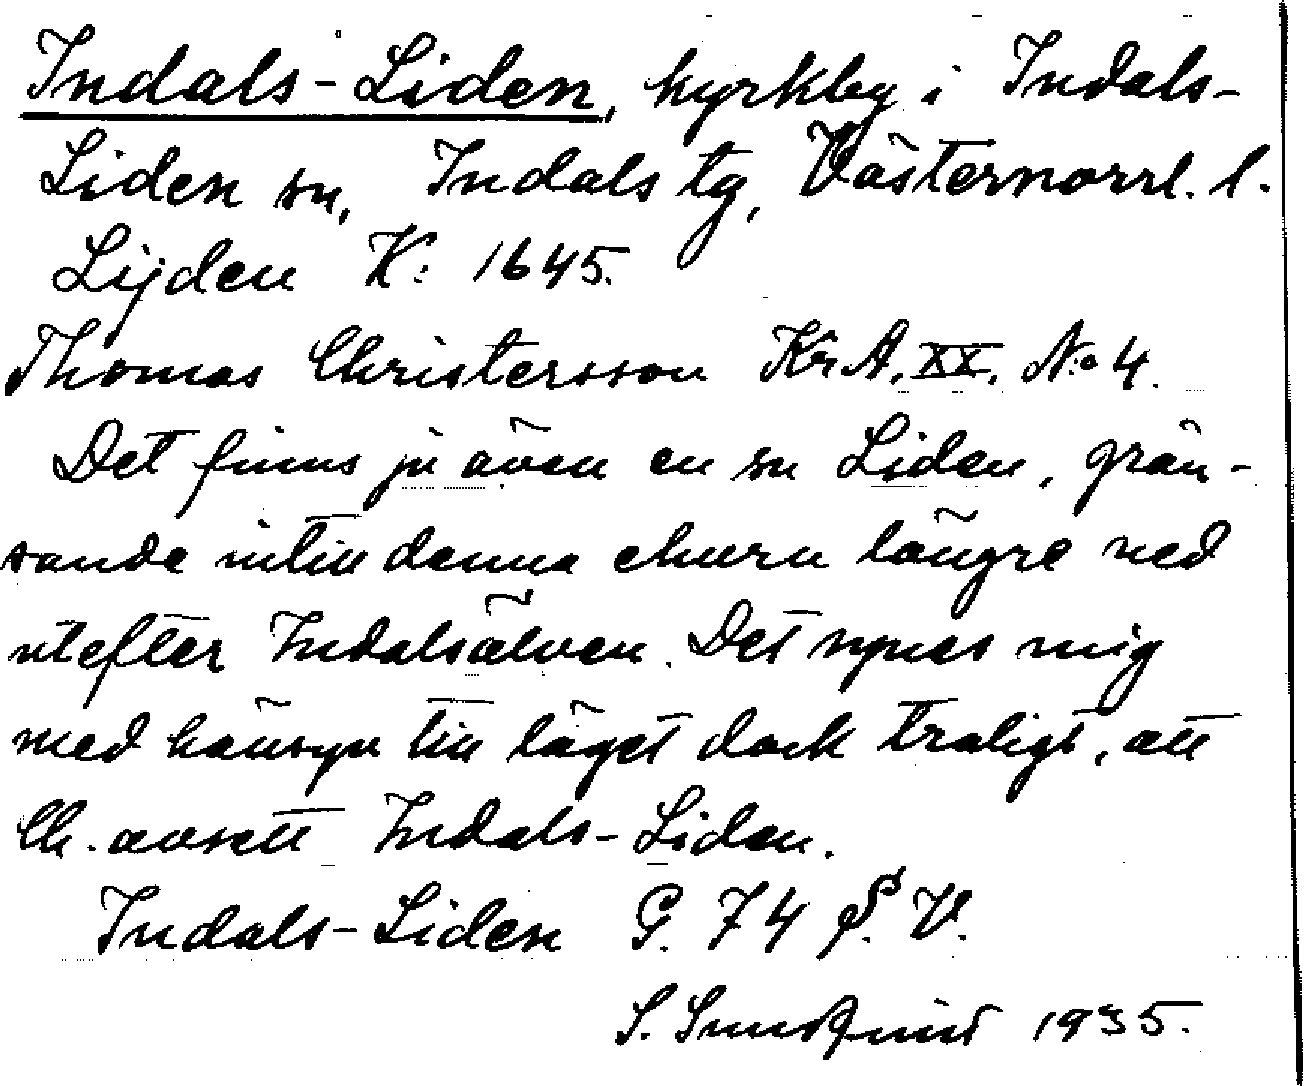 Indals-Liden, kyrkby i Indals-
Liden sn, Indals tg, Västernorrl. l.
Lijden K: 1645.
Thomas Christersson Kr A. XX. No 4.
Det finns ju även en sn Liden, grän-
sande intill denna ehuru längre ned
utefter Indalsälven. Det synes mig
med hänsyn till läget dock troligt, att
Ch. avsett Indals-Liden.
Indals-Liden G. 74 S. V.
S. Sundqvist 1935.